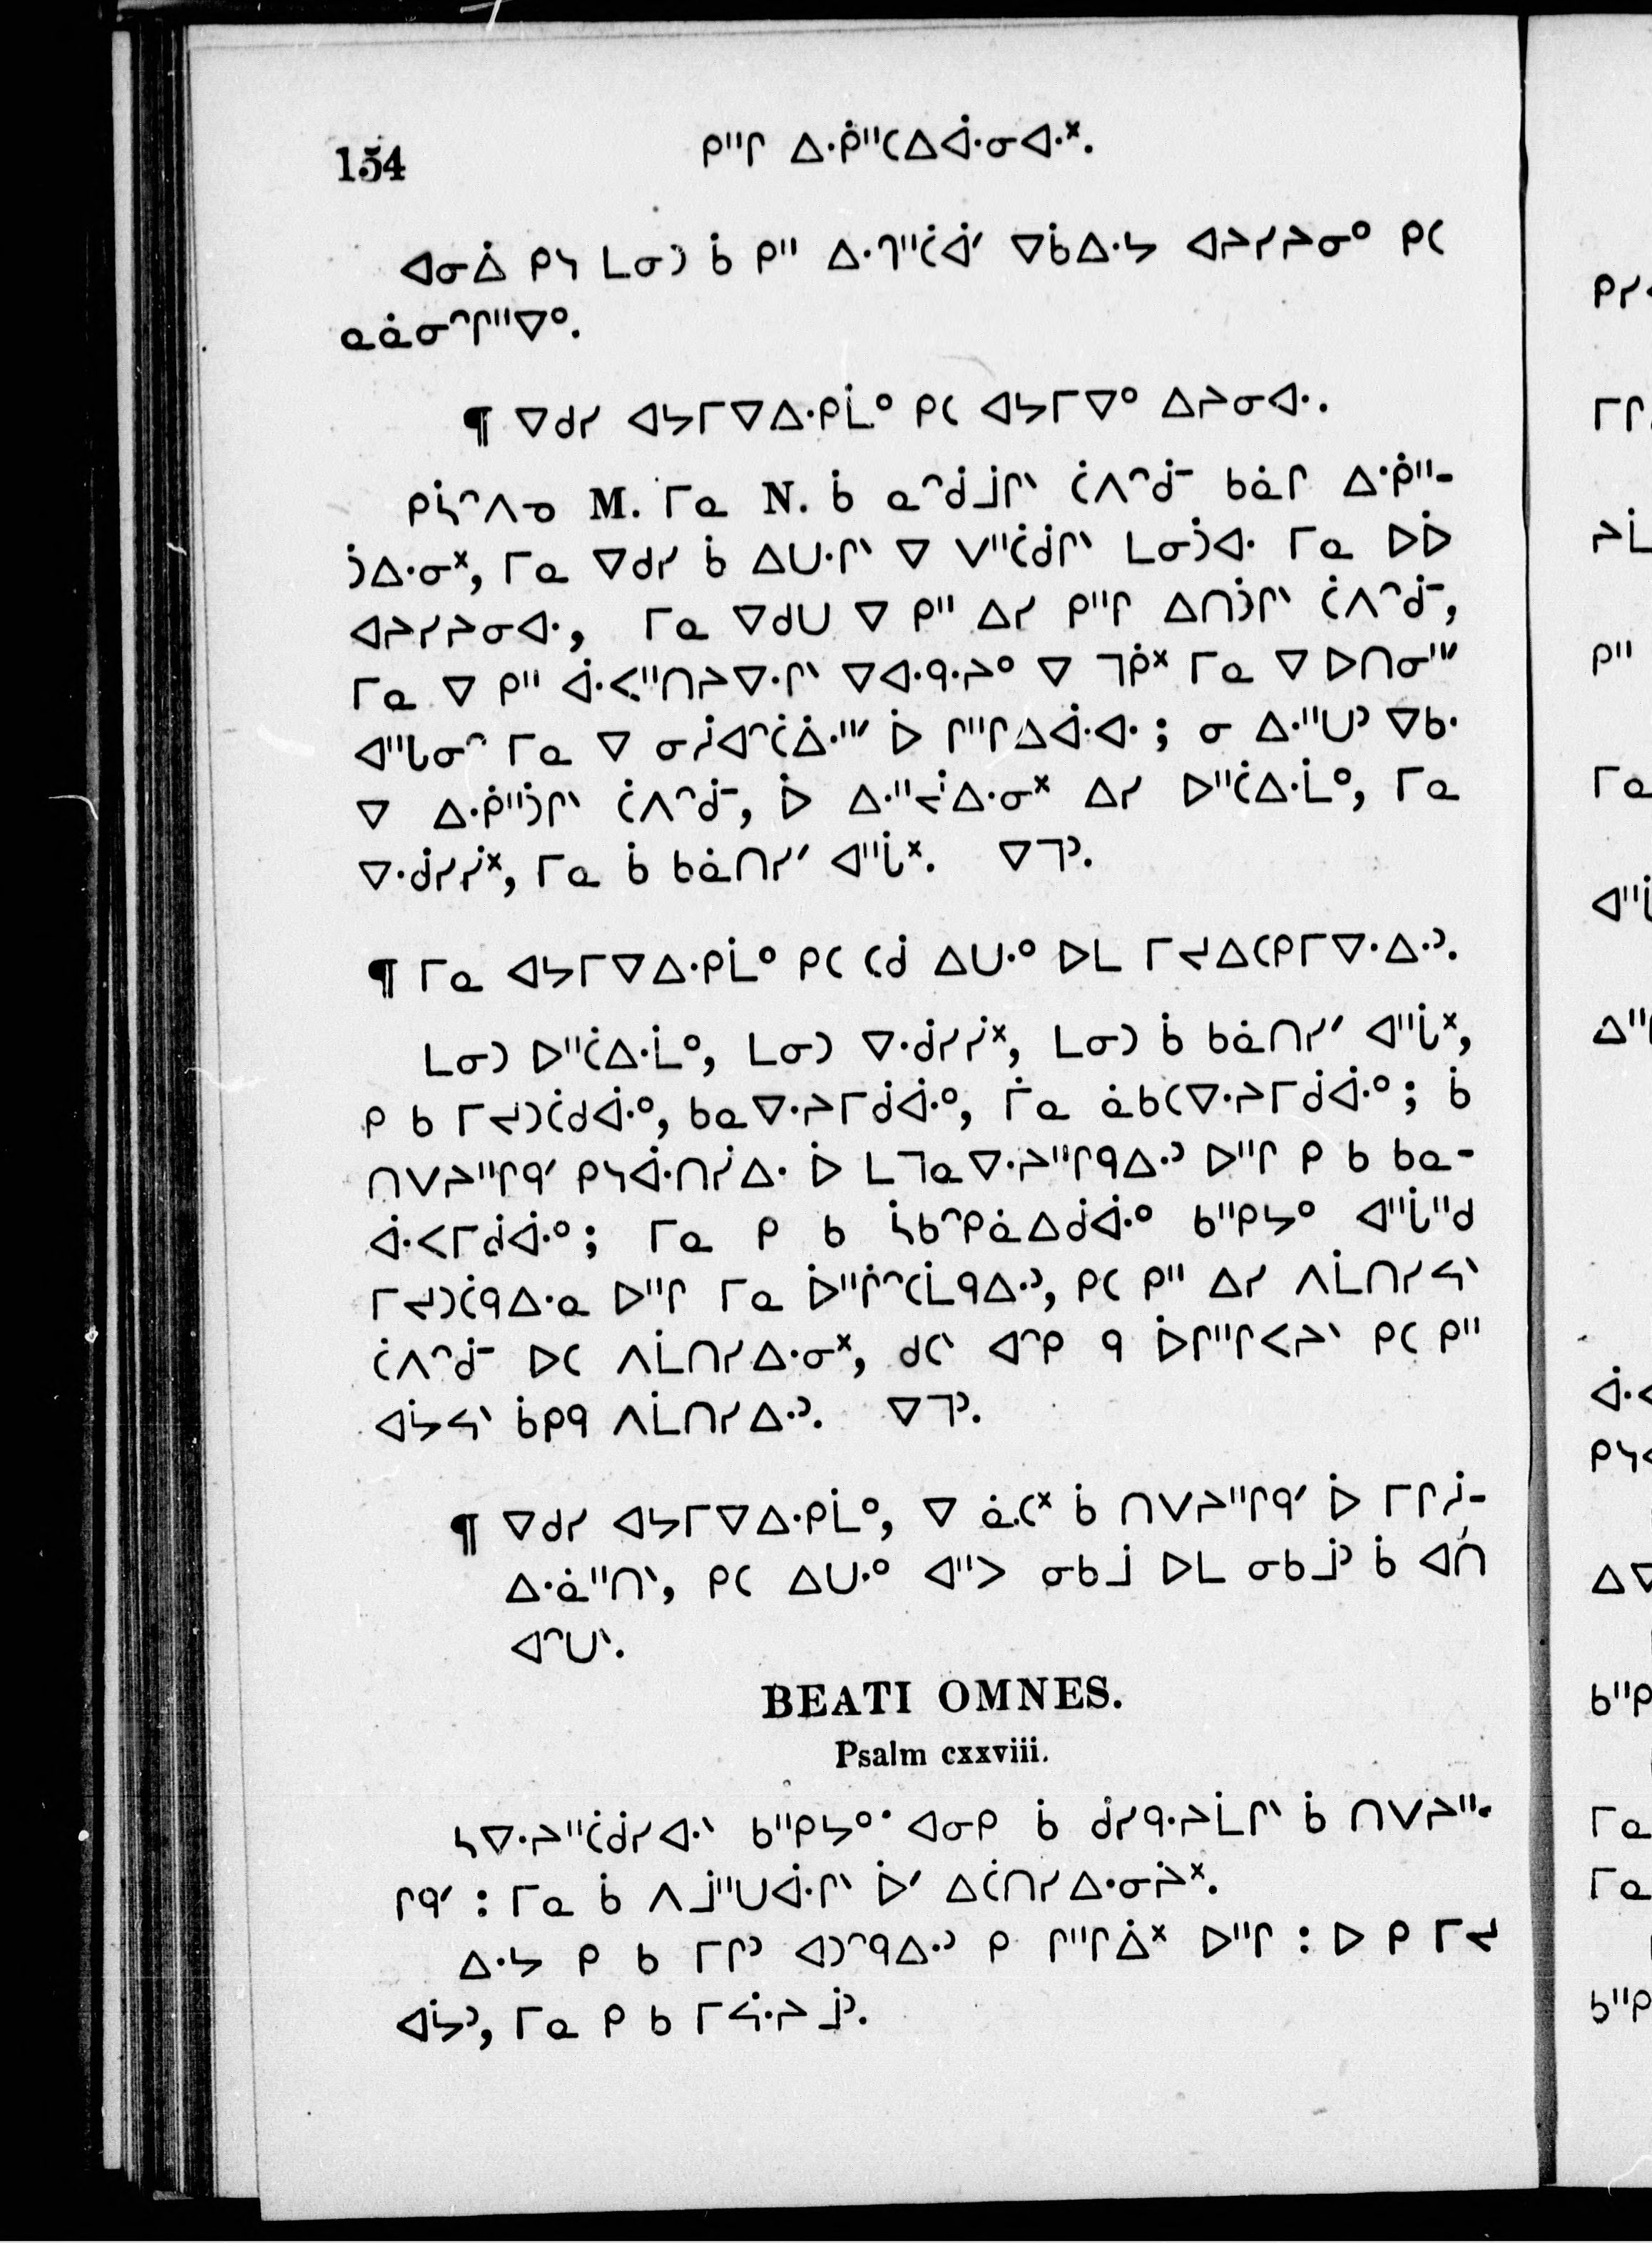 154 ᑭᐦᒋ ᐃᐧᑮᐦᑕᐃᐚᓂᐊᐧᕽ.
ᐊᓂᐄ ᑭᓴ ᒪᓂᑐ ᑳ ᑭᐦ ᐃᐧᒉᐦᑖᐚᐟ ᐁᑳᐃᐧᔭ ᐊᔨᓯᔨᓂᐤ ᑭᑕ
ᓇᓈᓂᐢᒋᐦᐁᐤ.
¶ ᐁᑯᓯ ᐊᔭᒥᐁᐃᐧᑭᒫᐤ ᑭᑕ ᐊᔭᒥᐁᐤ ᐃᔨᓂᐊᐧ.
ᑭᓵᐢᐱᓀ M. ᒥᓇ N. ᑳ ᓇᐢᑰᒧᒋᐠ ᑖᐱᐢᑰᐨ ᑲᓈᒋ ᐃᐧᑮᐦ-
ᑑᐃᐧᓂᕽ, ᒥᓇ ᐁᑯᓯ ᑳ ᐃᑌᐧᒋᐠ ᐁ ᐯᐦᑖᑰᒋᐠ ᒪᓂᑑᐊᐧ ᒥᓇ ᐅᐆ
ᐊᔨᓯᔨᓂᐊᐧ, ᒥᓇ ᐁᑯᑌ ᐁ ᑭᐦ ᐃᓯ ᑭᐦᒋ ᐃᑎᑑᒋᐠ ᑖᐱᐢᑰᐨ,
ᒥᓇ ᐁ ᑭᐦ ᐚᐸᐦᑎᔨᐁᐧᒋᐠ ᐁᐊᐧᑫᐧᔨᐤ ᐁ ᒣᑮᕽ ᒥᓇ ᐁ ᐅᑎᓂᐦᐟ
ᐊᐦᒐᓂᐢ ᒥᓇ ᐁ ᓂᓰᐊᐢᑖᐄᐧᐦᐟ ᐆ ᒋᐦᒋᐃᐚᐊᐧ; ᓂ ᐃᐧᐦᑌᐣ ᐁᑲᐧ
ᐁ ᐃᐧᑮᐦᑑᒋᐠ ᑖᐱᐢᑰᐨ, ᐆ ᐃᐧᐦᔫᐃᐧᓂᕽ ᐃᓯ ᐅᐦᑖᐃᐧᒫᐤ, ᒥᓇ
ᐁᐧᑰᓯᓰᕽ, ᒥᓇ ᑳ ᑲᓈᑎᓯᐟ ᐊᐦᒑᕽ. ᐁᒣᐣ.
¶ ᒥᓇ ᐊᔭᒥᐁᐃᐧᑭᒫᐤ ᑭᑕ ᑕᑰ ᐃᑌᐧᐤ ᐅᒪ ᒥᔪᐃᑕᑭᒥᐁᐧᐃᐧᐣ.
ᒪᓂᑐ ᐅᐦᑖᐃᐧᒫᐤ, ᒪᓂᑐ ᐁᐧᑰᓯᓰᕽ, ᒪᓂᑐ ᑳ ᑲᓈᑎᓯᐟ ᐊᐦᒑᕽ,
ᑭ ᑲ ᒥᔪᑐᑖᑯᐚᐤ, ᑲᓇᐁᐧᔨᒥᑰᐚᐤ, ᒦᓇ ᓈᑲᑕᐁᐧᔨᒥᑰᐚᐤ; ᑳ
ᑎᐯᔨᐦᒋᑫᐟ ᑭᓴᐚᑎᓰᐃᐧ ᐆ ᒪᒣᓇᐁᐧᔨᐦᒋᑫᐃᐧᐣ ᐅᐦᒋ ᑭ ᑲ ᑲᓇ-
ᐚᐸᒥᑰᐚᐤ; ᒥᓇ ᑭ ᑲ ᓵᑲᐢᑭᓈᐃᑰᐚᐤ ᑲᐦᑭᔭᐤ ᐊᐦᒑᐦᑯ
ᒥᔪᑐᑖᑫᐃᐧᓇ ᐅᐦᒋ ᒥᓇ ᐆᐦᒌᐢᑕᒫᑫᐃᐧᐣ, ᑭᑕ ᑭᐦ ᐃᓯ ᐱᒫᑎᓯᔦᐠ
ᑖᐱᐢᑰᐨ ᐅᑕ ᐱᒫᑎᓯᐃᐧᓂᕽ, ᑯᑕᐠ ᐊᐢᑭ ᑫ ᐆᒋᐦᒋᐸᔨᐠ ᑭᑕ ᑭᐦ
ᐊᔮᔦᐠ ᑳᑭᑫ ᐱᒫᑎᓯᐃᐧᐣ. ᐁᒣᐣ.
¶ ᐁᑯᓯ ᐊᔭᒥᐁᐃᐧᑭᒫᐤ, ᐁ ᓈᑕᕽ ᑳ ᑎᐯᔨᐦᒋᑫᐟ ᐆ ᒥᒋᓲ-
ᐃᐧᓈᐦᑎᐠ, ᑭᑕ ᐃᑌᐧᐤ ᐊᐦᐳ ᓂᑲᒧ ᐅᒪ ᓂᑲᒧᐣ ᑳ ᐊᑏ
ᐊᐢᑌᐠ.
BEATI OMNES.
Psalm cxxviii.
ᓴᐁᐧᔨᐦᑖᑰᓯᐊᐧᐠ ᑲᐦᑭᔭᐤ ᐊᓂᑭ ᑳ ᑰᓯᑫᐧᔨᒫᒋᐠ ᑳ ᑎᐯᔨᐦ-
ᒋᑫᐟ : ᒥᓇ ᑳ ᐱᒨᐦᑌᐚᒋᐠ ᐆᐟ ᐃᑖᑎᓯᐃᐧᓂᔩᕽ.
ᐃᐧᔭ ᑭ ᑲ ᒥᒋᐣ ᐊᑐᐢᑫᐃᐧᐣ ᑭ ᒋᐦᒋᐄᕽ ᐅᐦᒋ : ᐅ ᑭ ᒥᔪ
ᐊᔮᐣ, ᒥᓇ ᑭ ᑲ ᒥᔼᐧᔨ ᒨᐣ.